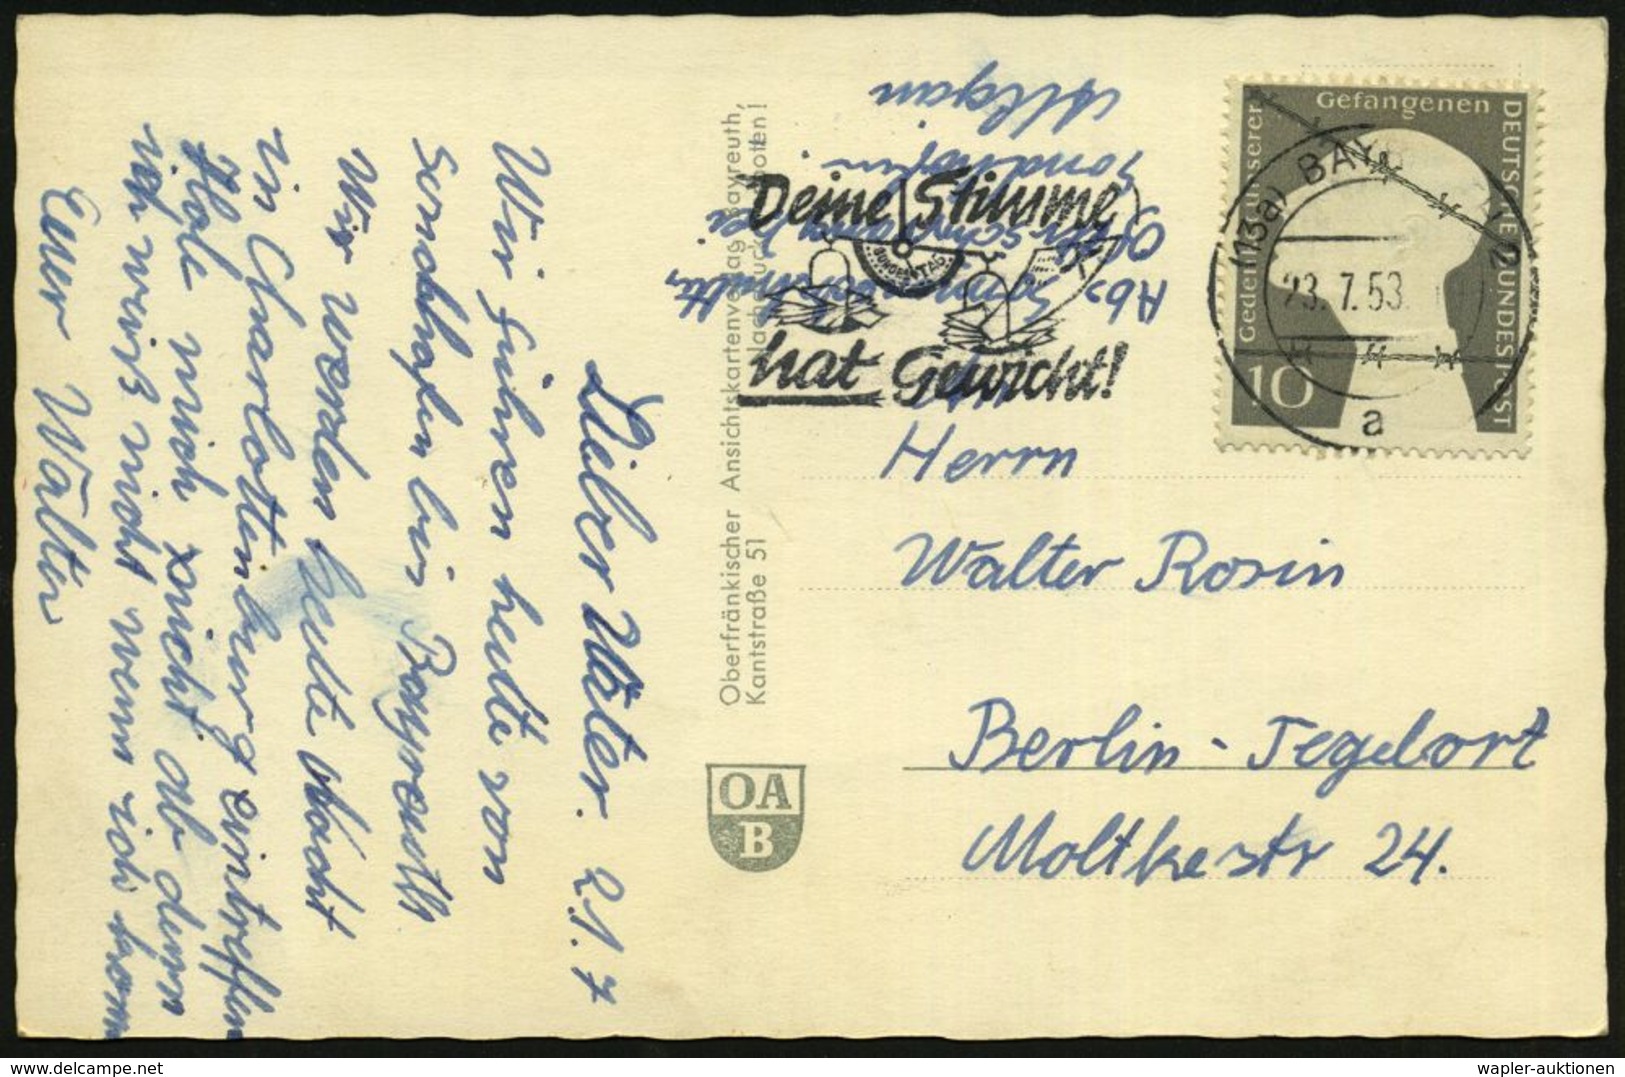 Lieber Vater. 21.7
Wir fuhren heute von
Sondhofen bis Bayreuth
Wir werden heute Nacht
in Charlottenburg eintreffen
Hole mich nicht ab denn
ich weiß nicht wenn ich komm
Euer Walter
Oberfränkischer Ansichtskartenverlag Bayreuth,
Kantstraße 51
OA
B
Abs
bei
Sondhofen
Allgäu
Deine Stimme
BUNDESTAG
hat Gewicht!
Gedenkt unserer Gefangenen
DEUTSCHE BUNDESPOST
10
(13a) BAY 2
23.7.53
a
Herrn
Walter Rosin
Berlin - Tegelort
Moltkestr 24.
wapler-auktionen